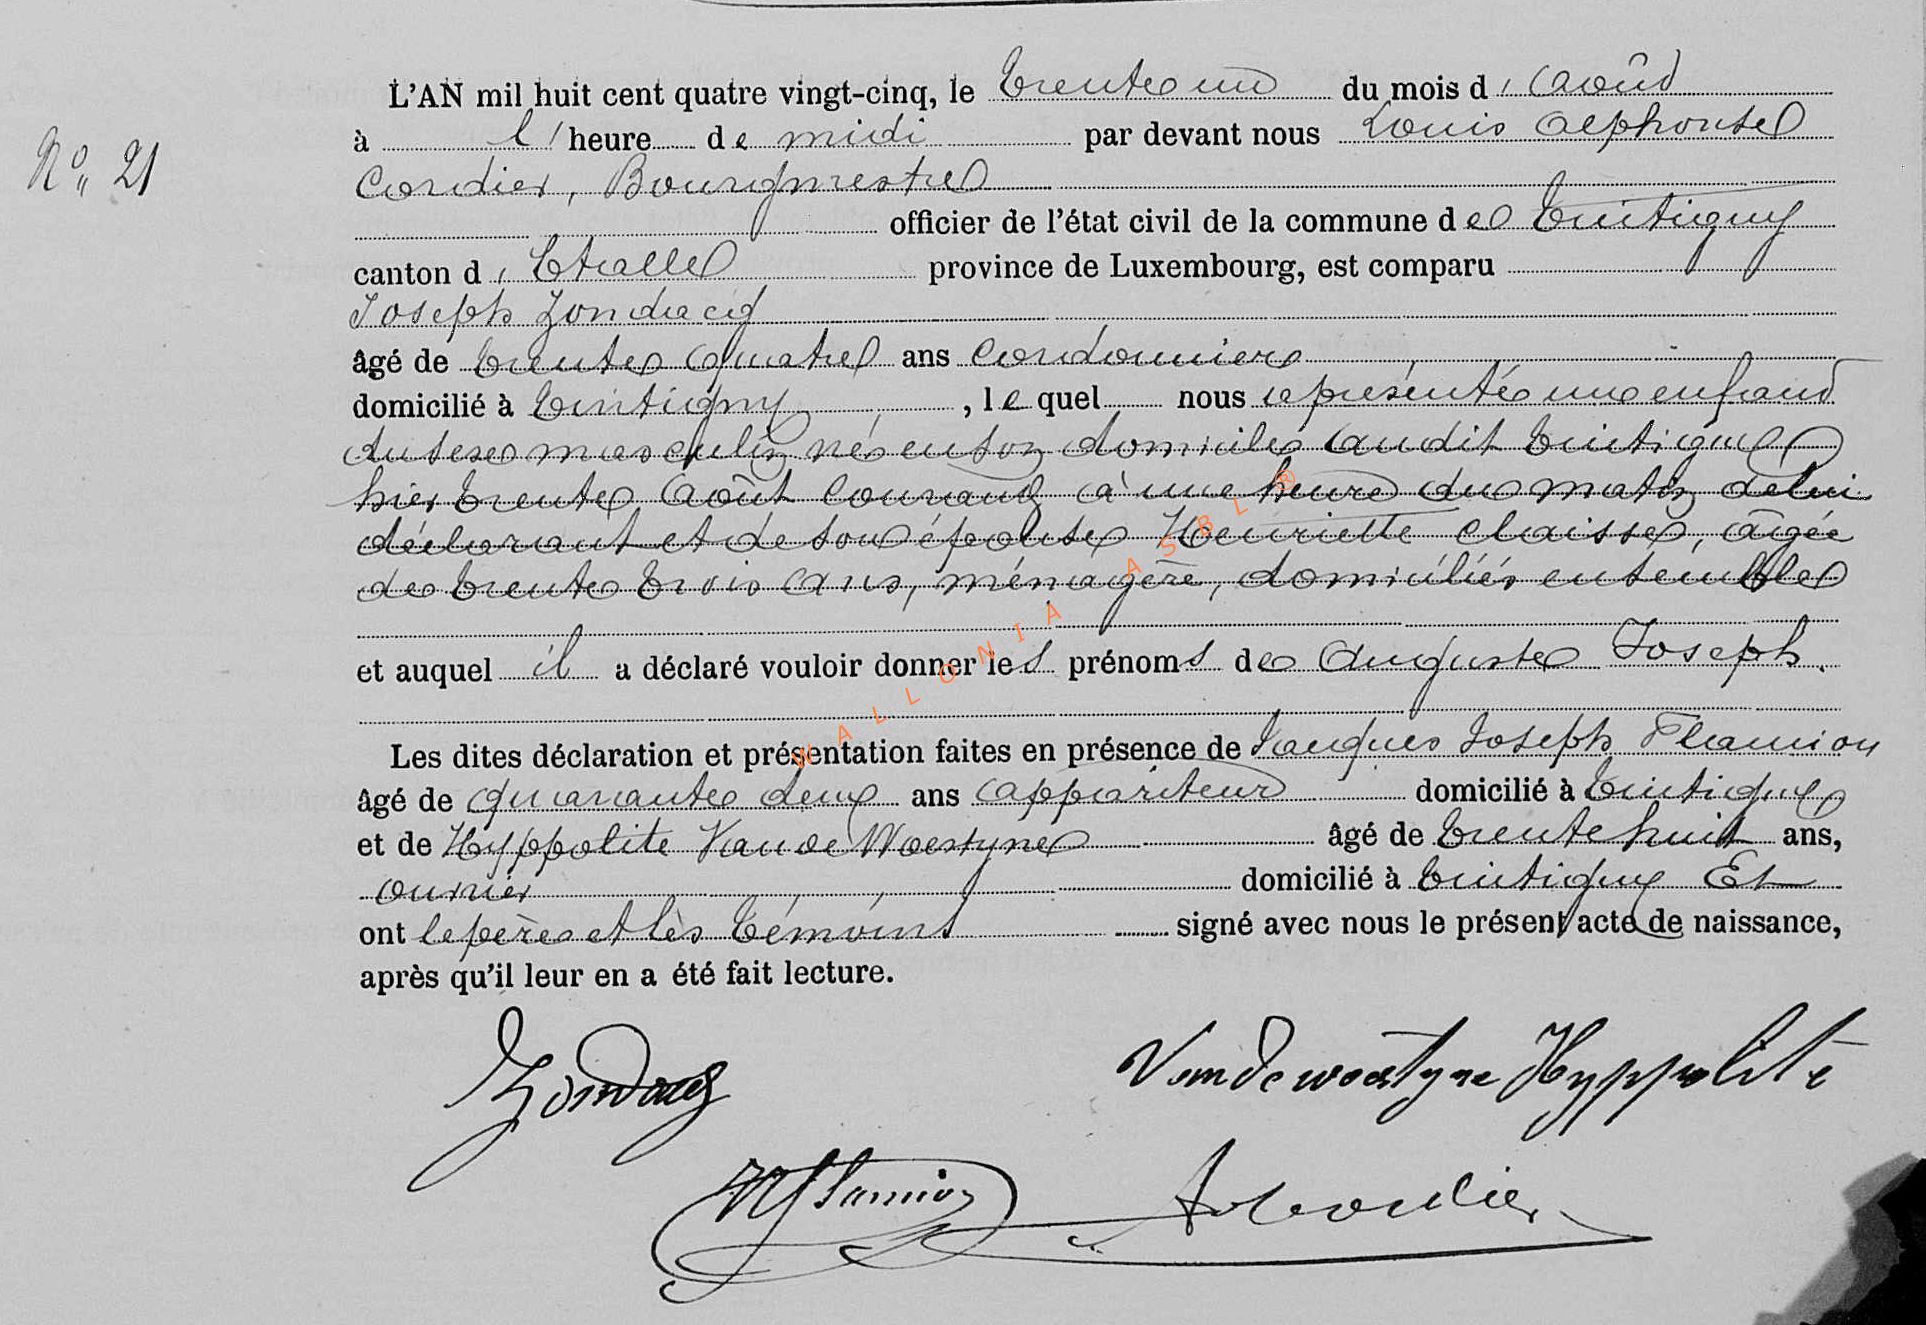 L'AN mil huit cent quatre vingt-cinq, le trente un du mois d' août
N° 21
à l'heure de midi par devant nous Louis Alphonse
Cordier, Bourgmestre
officier de l'état civil de la commune de Tintigny
canton d' Etalle province de Luxembourg, est comparu
Joseph Zondacq
âgé de trente quatre ans cordonnier
domicilié à Tintigny, lequel nous représenté une enfant
du sexe masculin né en son domicile audit Tintigny
hier trente août courant à une heure du matin de lui
déclarant et de son épouse Henriette Claisse, âgée
de trente trois ans, ménagère, domiciliés ensemble
et auquel il a déclaré vouloir donner les prénoms de Auguste Joseph.
Les dites déclaration et présentation faites en présence de Jacques Joseph Flamion
âgé de quarante deux ans appariteur domicilié à Tintigny
et de Hyppolite Van de Woestyne âgé de trente huit ans,
ouvrier domicilié à Tintigny Et
ont le père et les témoins signé avec nous le présent acte de naissance,
après qu'il leur en a été fait lecture.
Zondacq Vandewoestyne Hyppolite
Flamion Cordier
WALLONIA ASBL